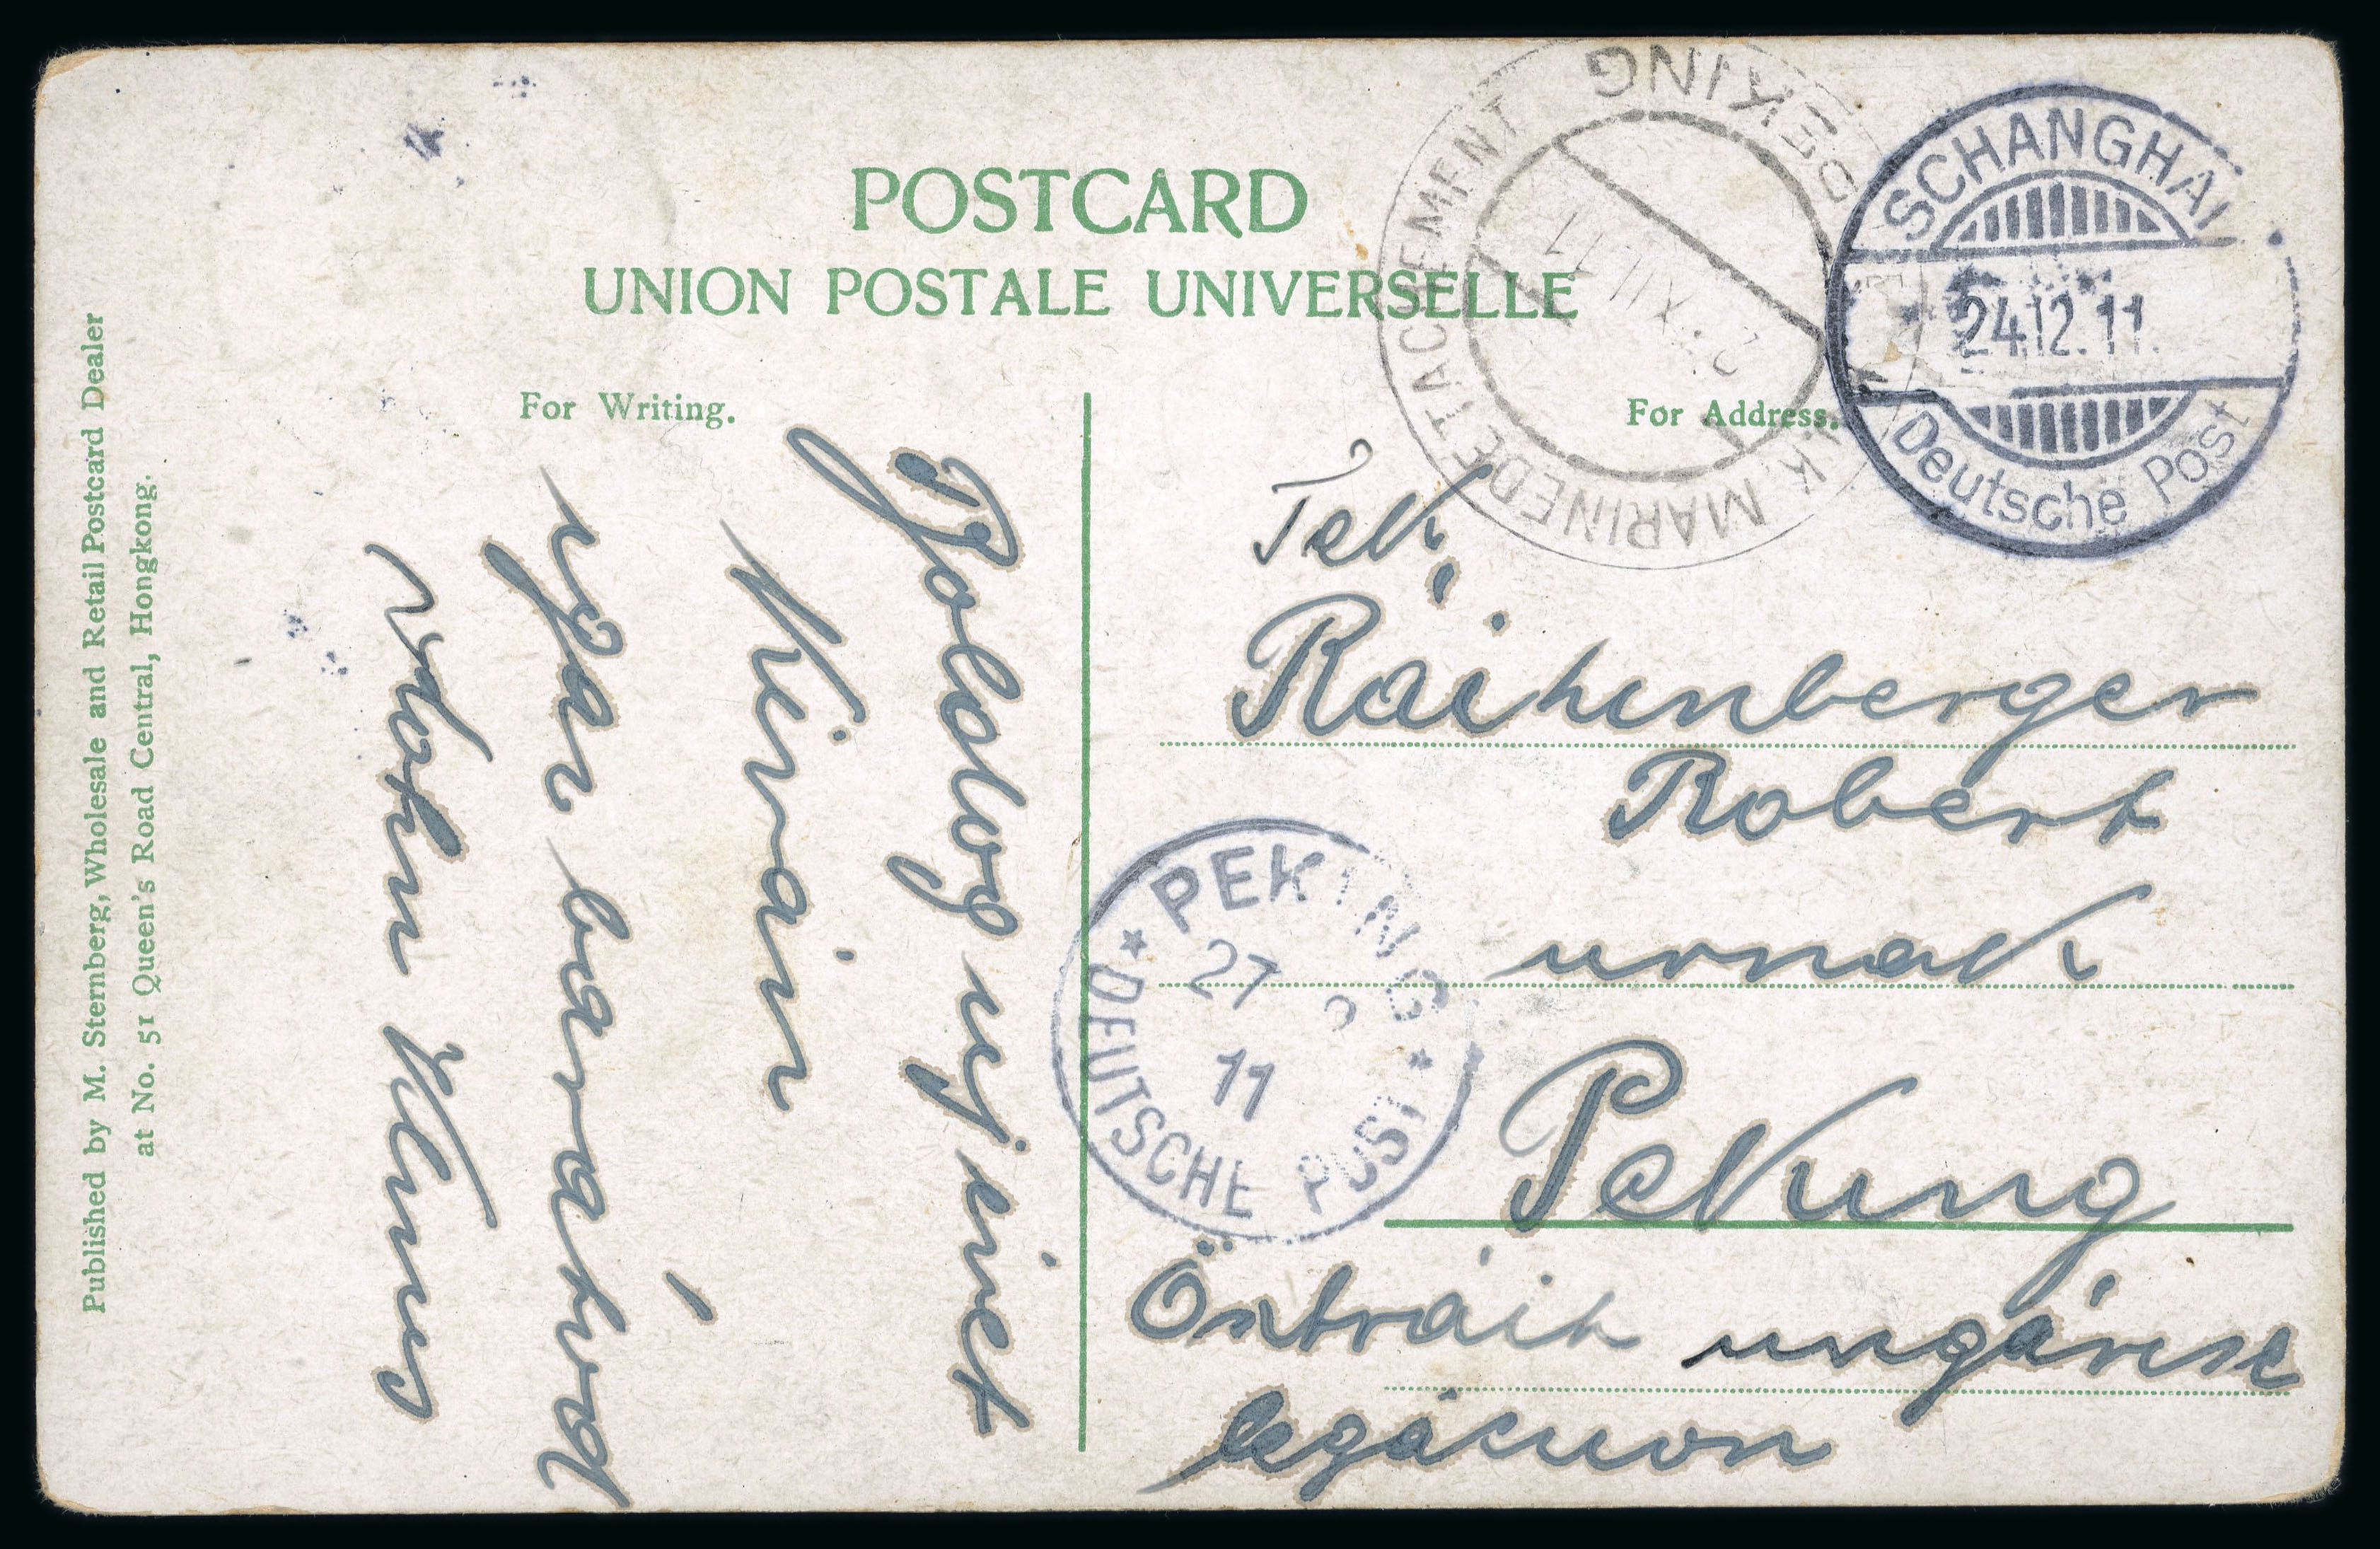 POSTCARD
UNION POSTALE UNIVERSELLE
For Writing.
For Address.
Published by M. Sternberg, Wholesale and Retail Postcard Dealer
at No. 51 Queen's Road Central, Hongkong.
Boldog uj évet
Kiván
igaz barátod
Tek.
Raihenberger
Robert
urnak
Peking
legácuon
SCHANGHAI
24.12.11.
Deutsche Post
K.K. MARINEDETACHEMENT
PEKING
XII 11
PEKING
27
11
DEUTSCHE POST